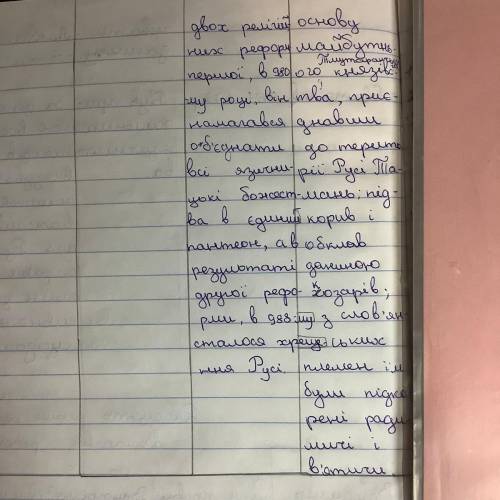 двох релігій
них реформ
першої, в 980
му році, він
намагався
об'єднати
всі язични
цькі божест
ва в єдиний
пантеон, а в
результаті
другої рефо
рми, в 988 му
сталося хреще
ння Русі.
основу
майбутнь
Тмутаракансь
ого князівс
тва, приє
днавши
до терито
рії Русі Та
мань; під
корив і
обклав
даниною
хозарів;
з слов'ян
ських
племен ім
були підко
рені ради
мичі і
в'ятичі